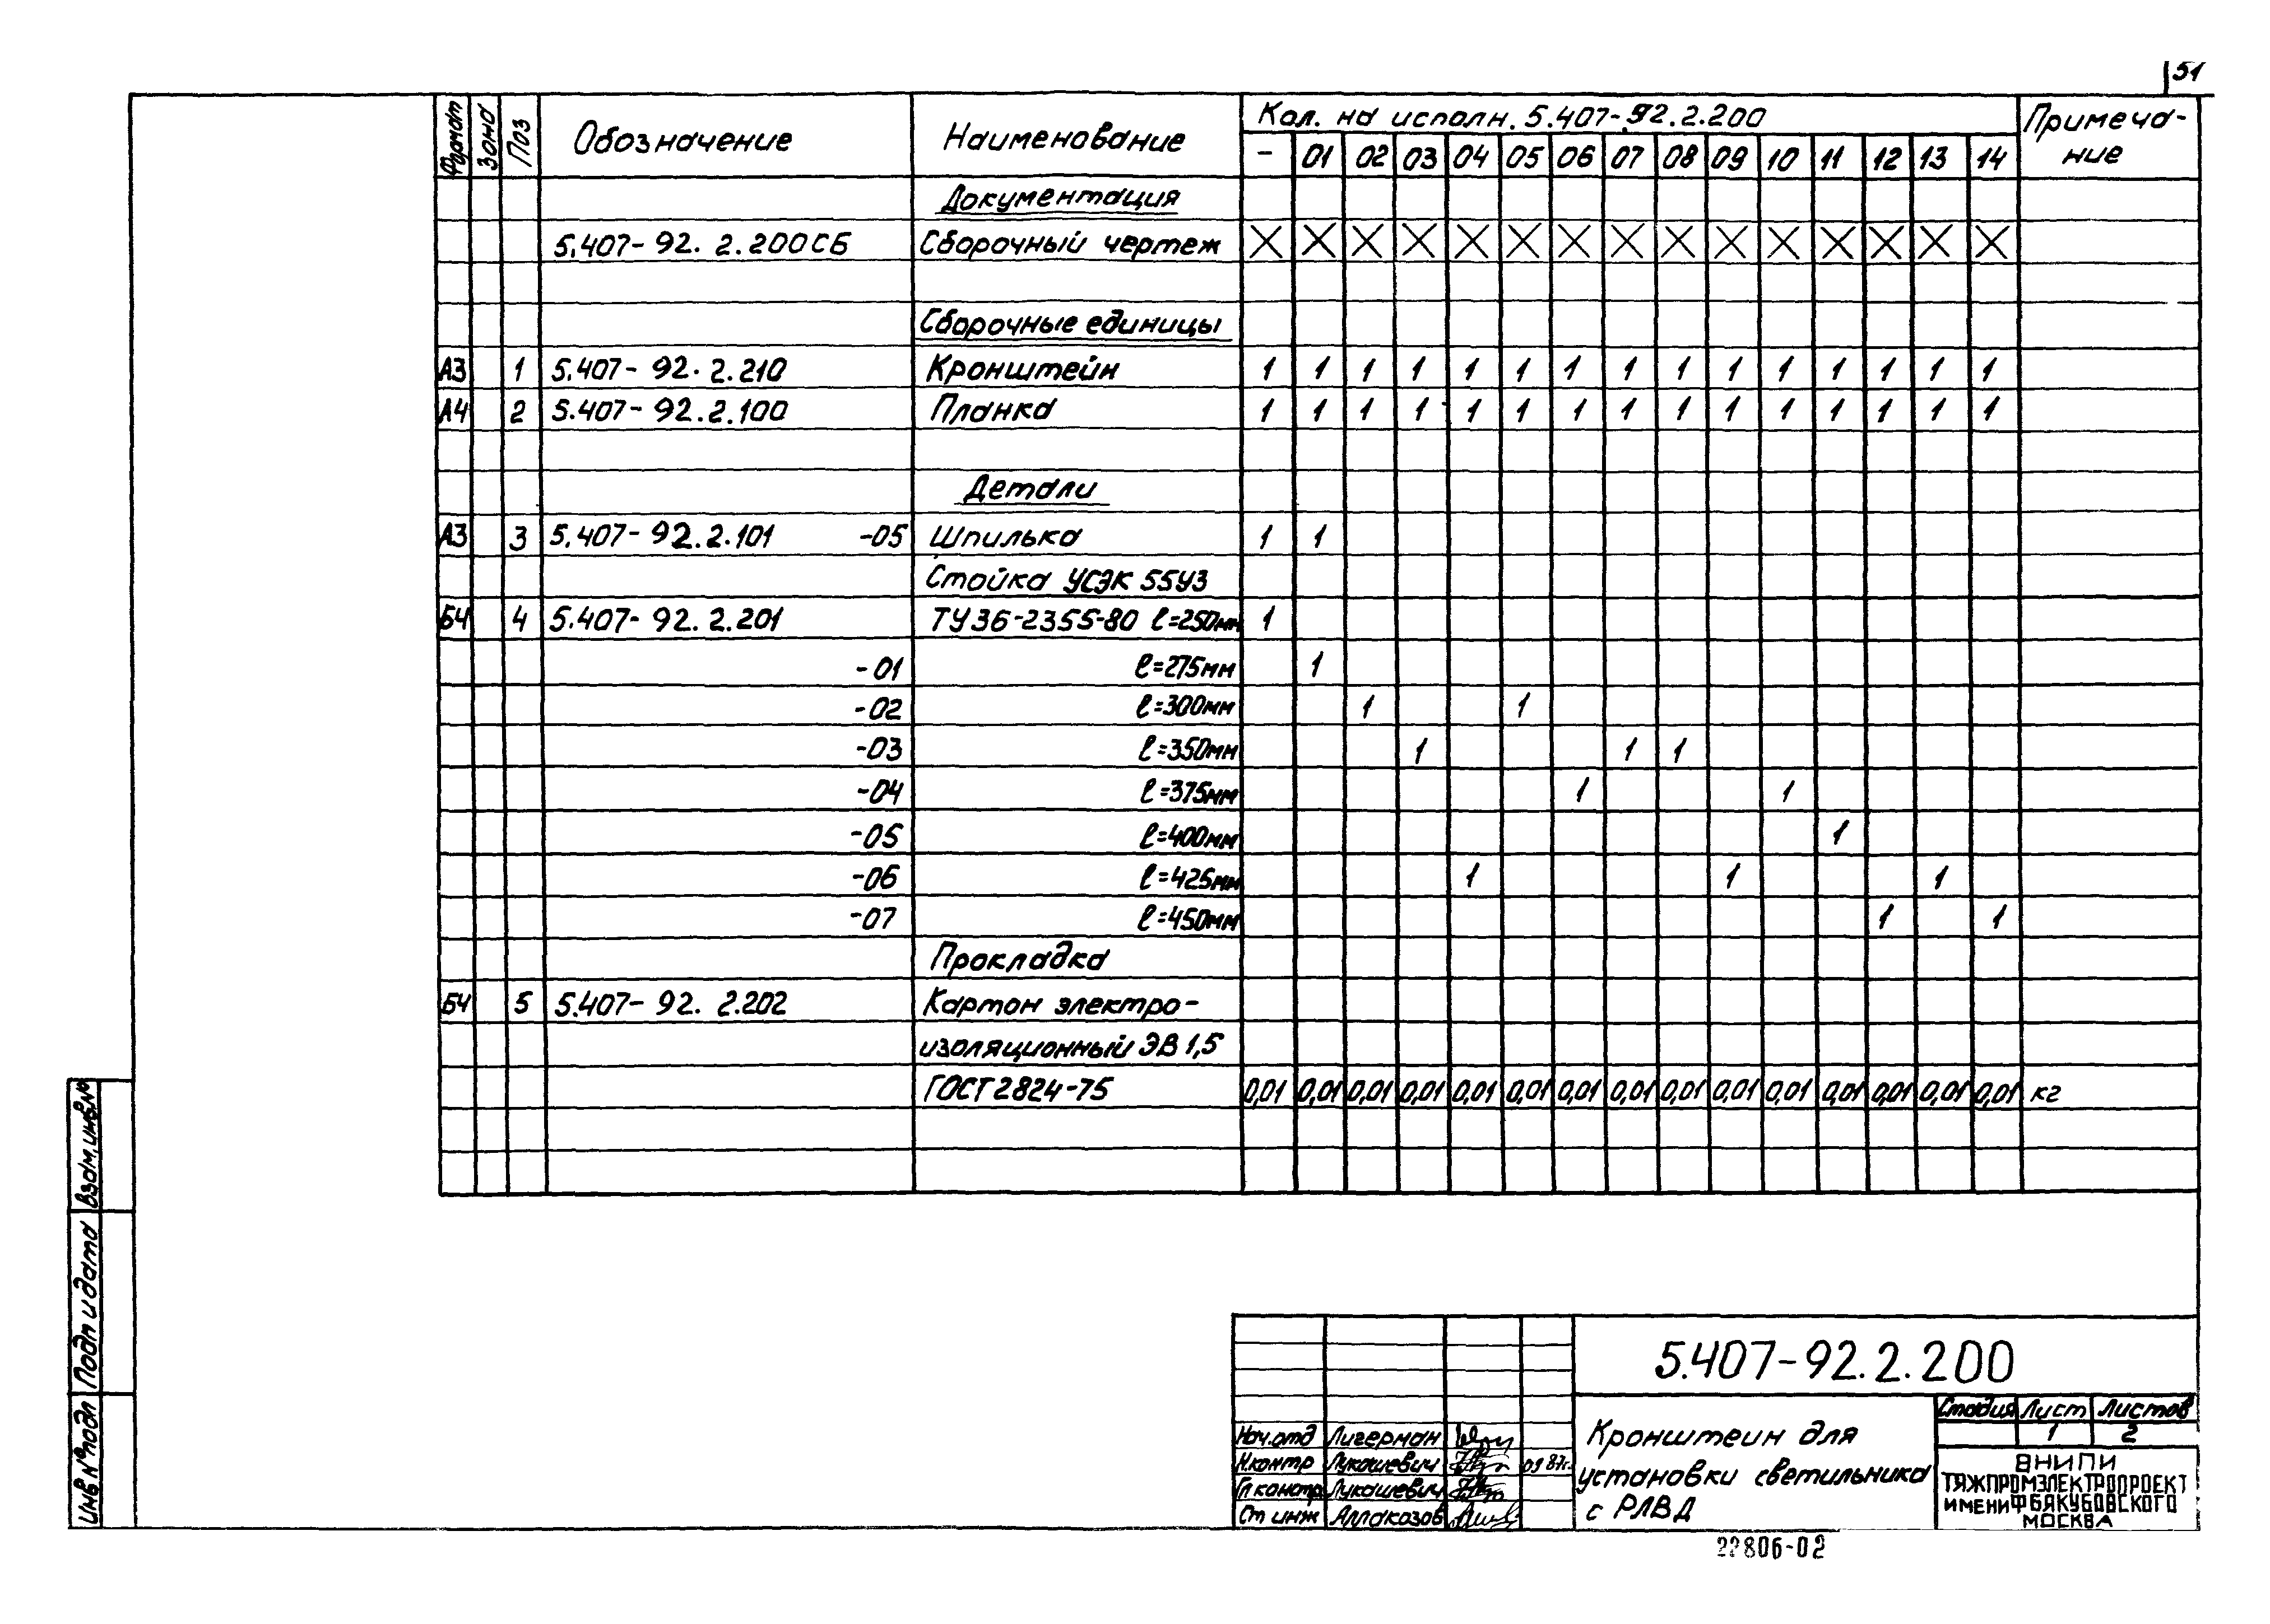 51
Формат Зона Поз Обозначение Наименование Кол. на исполн. 5.407-92.2.200 Примеча-
ние
- 01 02 03 04 05 06 07 08 09 10 11 12 13 14
Документация
5.407-92. 2.200СБ Сборочный чертеж X X X X X X X X X X X X X X X
Сборочные единицы
А3 1 5.407-92.2.210 Кронштейн 1 1 1 1 1 1 1 1 1 1 1 1 1 1 1
А4 2 5.407-92.2.100 Планка 1 1 1 1 1 1 1 1 1 1 1 1 1 1 1
Детали
А3 3 5.407-92.2.101 -05 Шпилька 1 1
Стойка УСЭК 55У3
БЧ 4 5.407-92.2.201 ТУ36-2355-80 ℓ=250мм 1
-01 ℓ=275мм 1
-02 ℓ=300мм 1 1
-03 ℓ=350мм 1 1 1
-04 ℓ=375мм 1 1
-05 ℓ=400мм 1
-06 ℓ=425мм 1 1 1
-07 ℓ=450мм 1 1
Прокладка
БЧ 5 5.407-92. 2.202 Картон электро-
изоляционный ЭВ 1,5
ГОСТ 2824-75 0,01 0,01 0,01 0,01 0,01 0,01 0,01 0,01 0,01 0,01 0,01 0,01 0,01 0,01 0,01 кг
Взам.инв.№
Подп и дата
Инв № подл
5.407-92.2.200
Нач.отд Лигерман
Н.контр Лукашевич 09 87г.
Гл констр Лукашевич
Ст инж Аллакозов
Кронштеин для
установки светильника
с РЛВД
Стадия Лист Листов
1 2
ВНИПИ
ТЯЖПРОМЭЛЕКТРОПРОЕКТ
ИМЕНИ Ф БЯКУБОВСКОГО
МОСКВА
22806-02